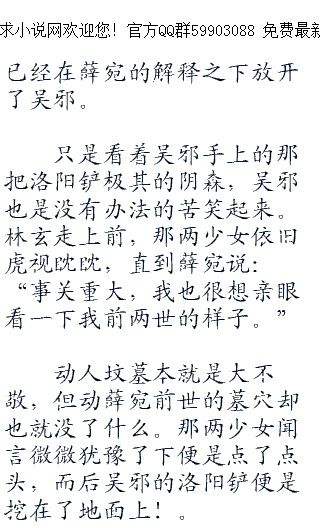 求小说网欢迎您! 官方QQ群59903088 免费最新
已经在薛宛的解释之下放开
了吴邪。
只是看着吴邪手上的那
把洛阳铲极其的阴森，吴邪
也是没有办法的苦笑起来。
林玄走上前，那两少女依旧
虎视眈眈，直到薛宛说：
“事关重大，我也很想亲眼
看一下我前两世的样子。”
动人坟墓本就是大不
敬，但动薛宛前世的墓穴却
也就没了什么。那两少女闻
言微微犹豫了下便是点了点
头，而后吴邪的洛阳铲便是
挖在了地面上！。